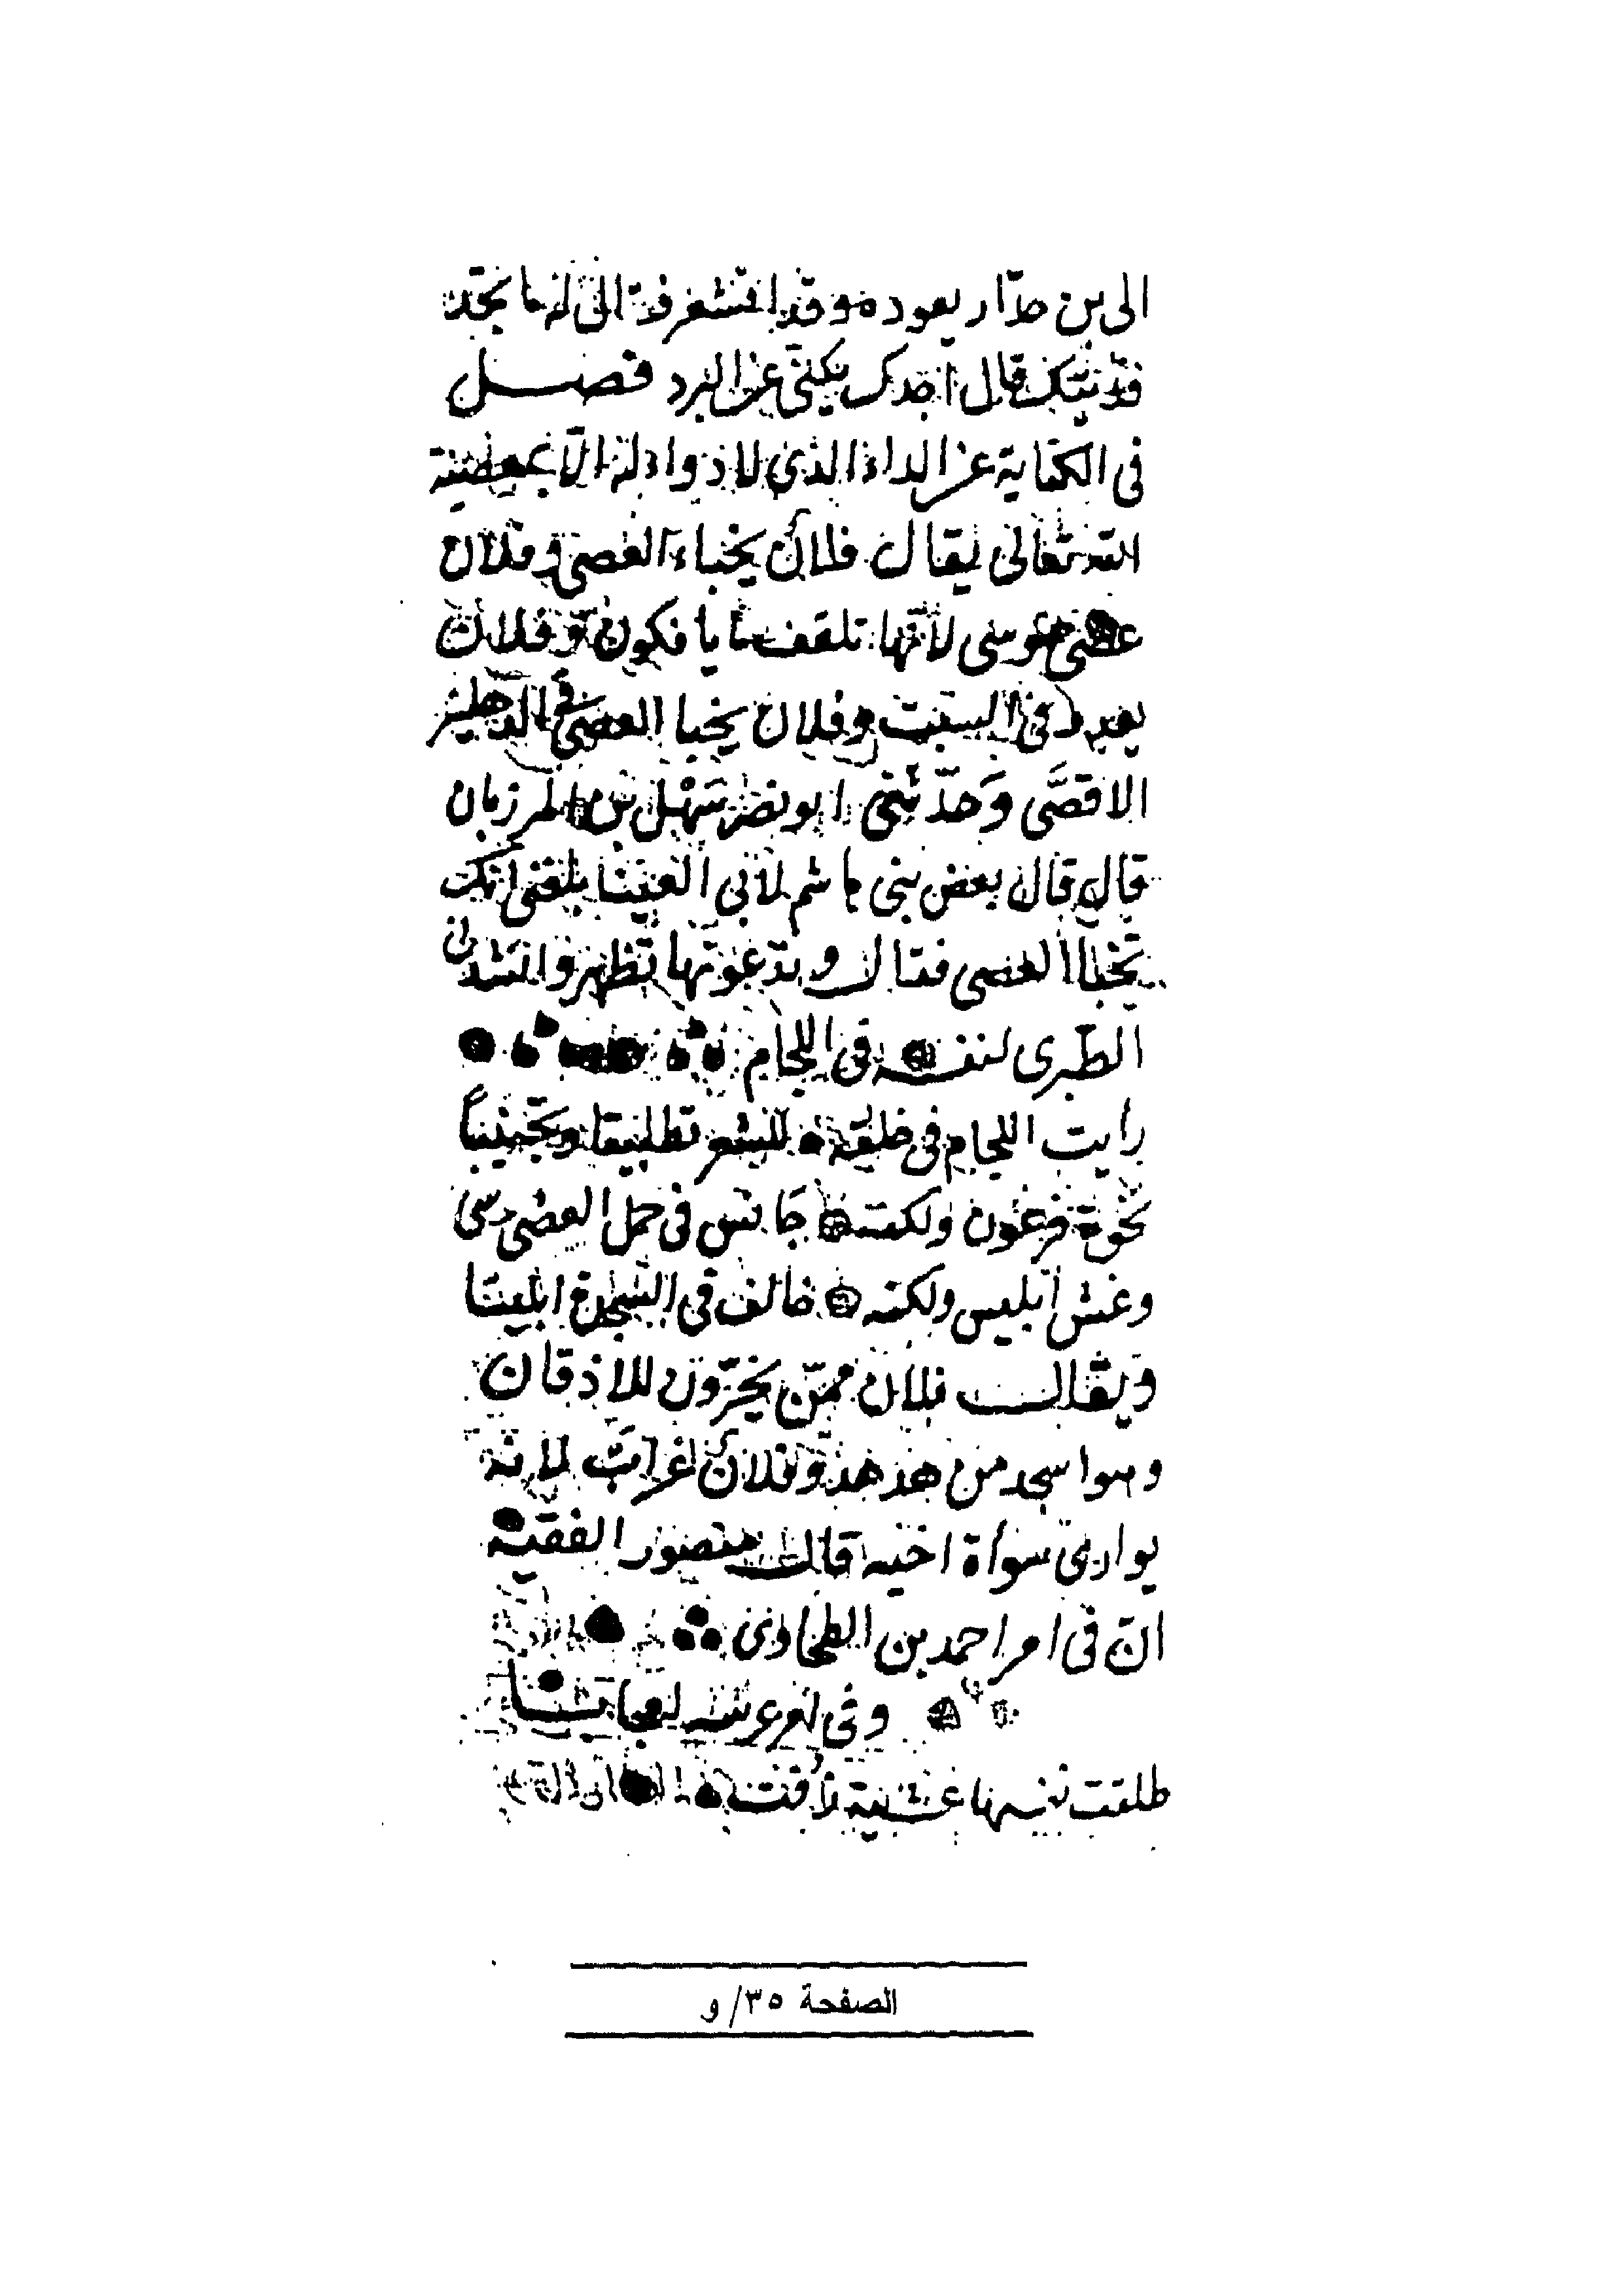 الى بن حدار يعوده وقد اقشعر فقال له ما تجد
فديتك قال اجدك يكنى عن البرد فصل
فى الكناية عن الداء الذى لا دواء له الا بمعصية
الله تعالى يقال فلان يخباء العصى وفلان
عصى موسى لانها تلقف ما يافكون وفلان
يعدو فى السبت وفلان يخبا العصى فى الدهليز
الاقصى وحدثنى ابو نصر سهل بن المرزبان
قال قال بعض بنى هاشم لابى العينا بلغنى انك
تخبا العصى فقال وتدعونها تظهر وانشدنى
الطبرى لنفسه فى اللجام
رايت اللجام فى خلقه للشعر تطبيقا وتجنيسا
نخوة فرعون ولكنه جانس فى حمل العصى موسى
وغش ابليس ولكنه خالف فى السجدة ابليسا
ويقال فلان ممن يخرون للاذقان
وهو اسجد من هدهد وفلان غراب لانه
يوارى سواة اخيه قال منصور الفقيه
ان فى امر احمد بن الطحاوى
وفى لعز عرسه لعجايبا
طلقت نفسها عشية زفت
الصفحة ٣٥/ و